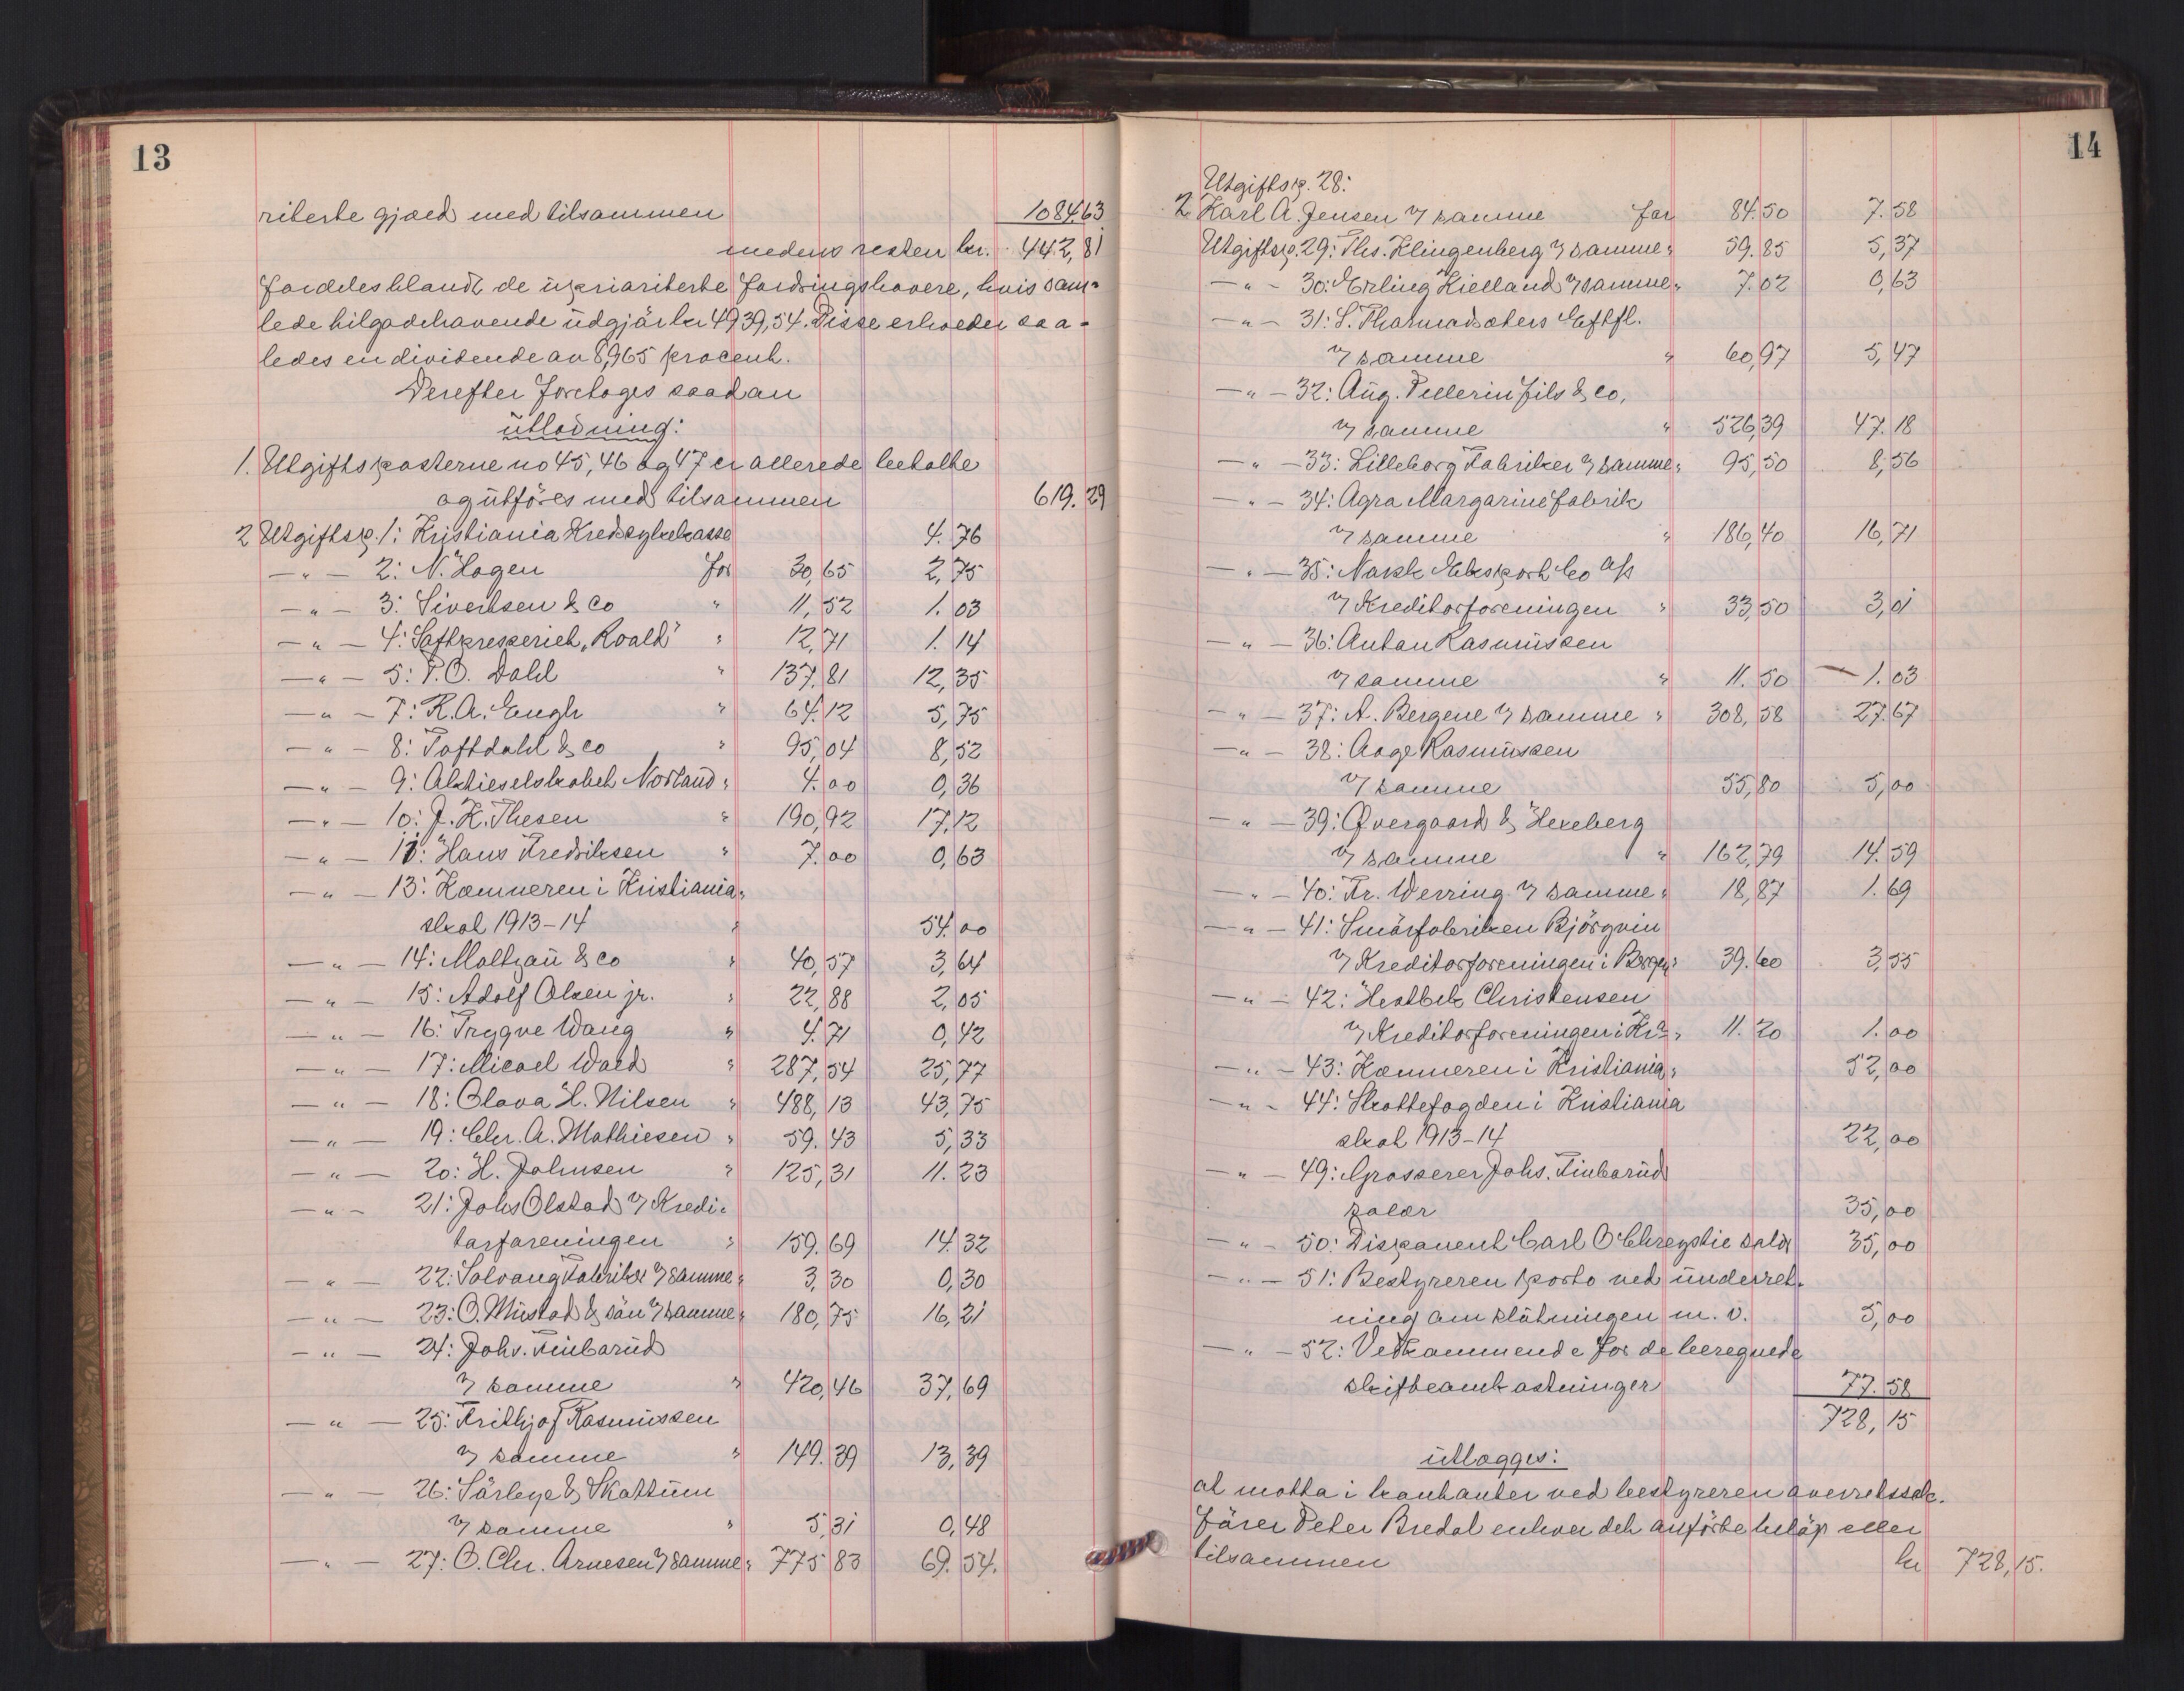 13
riterte gjæld med tilsammen 1084.63
medens resten kr. 442,81
fordeles blandt de upriariterte fordringshavere, hvis sam-
lede tilgodehavende udgjör kr 4939,54. Disse erholder saa-
ledes en dividende av 8,965 procent.
Derefter foretoges saadan
utlodning:
1. Utgiftsposterne no 45, 46 og 47 er allerede betalte
og utföres med tilsammen 619.29
2 Utgiftsp. 1: Kristiania Kredsykekasse 4.76
— " — 2: N. Hagen for 30,65 2,75
— " — 3: Sivertsen & Co " 11,52 1.03
— " — 4: Saftpresseriet „Roald" " 12,71 1.14
— " — 5: P.O. Dahl " 137.81 12,35
— " — 7: R.A. Engh " 64.12 5,75
— " — 8: Toftdahl & co " 95,04 8,52
— " — 9: Aktieselskabet Norland " 4.00 0,36
— " — 10: J.K. Thesen " 190,92 17.12
— " — 11: Hans Fredriksen " 7.00 0,63
— " — 13: Kæmneren i Kristiania,
skat 1913-14 " 54.00
— " — 14: Maltzau & co " 40,57 3,64
— " — 15: Adolf Olsen jr. " 22,88 2,05
— " — 16: Trygve Wang " 4.71 0,42
— " — 17: Micael Wold " 287,54 25,77
— " — 18: Olava H. Nilsen " 488,13 43,75
— " — 19: Chr. A. Mathiesen " 59.43 5,33
— " — 20: H. Johnsen " 125,31 11.23
— " — 21: Johs Olstad v/ Kredi-
torforeningen " 159.69 14.32
— " — 22: Solvang Fabriker v/ samme " 3,30 0,30
— " — 23: O. Mustad & sön v/ samme " 180,75 16,21
— " — 24: Johs. Finbarud
v/ samme " 420,46 37,69
— " — 25: Frithjof Rasmussen
v/ samme " 149.39 13,39
— " — 26: Sörbye & Skattum
v/ samme " 5,31 0,48
— " — 27: O. Chr. Arnesen v/ samme " 775 83 69.54.
14
Utgiftsp. 28:
2 Karl A. Jensen v/ samme for 84.50 7.58
Utgiftsp. 29: Ths. Klingenberg v/ samme " 59.85 5,37
— " — 30: Erling Kielland v/ samme " 7.02 0,63
— " — 31: S. Tharmodsæters Eftfl.
v/ samme " 60,97 5,47
— " — 32: Aug. Pellerin fils & co,
v/ samme " 526,39 47.18
— " — 33: Lilleborg Fabriker v/ samme " 95,50 8,56
— " — 34: Agra Margarinefabrik
v/ samme " 186,40 16,71
— " — 35: Norsk Eksport Co A/s
v/ Kreditorforeningen " 33,50 3,01
— " — 36: Anton Rasmussen
v/ samme " 11.50 1.03
— " — 37: A. Bergene v/ samme " 308,58 27.67
— " — 38: Aage Rasmussen
v/ samme 55,80 5,00
— " — 39: Qvergaard & Hexeberg
v/ samme " 162,79 14.59
— " — 40: Fr. Werring v/ samme " 18,87 1.69
— " — 41: Smörfabriken Björgvin
v/ Kreditorforeningen i Bergen " 39.60 3,55
— " — 42: Christensen
v/ Kreditorforeningen i Kra " 11.20 1.00
— " — 43: Kæmneren i Kristiania " 52,00
— " — 44: Skattefogden i Kristiania
skat 1913-14 22,00
— " — 49: Grosserer Johs. Finbarud
salær 35,00
— " — 50: Disponent Carl O Chrystie salær 35,00
— " — 51: Bestyreren porto ved underret-
ning om slutningen m.v. 5,00
— " — 52: Vedkommende for de beregnede
skifteomkostninger 77.58
728,15
utlægges:
at motta i kontanter ved bestyreren overretssak-
förer Peter Bredal enhver det anförte belöp eller
tilsammen kr 728,15.